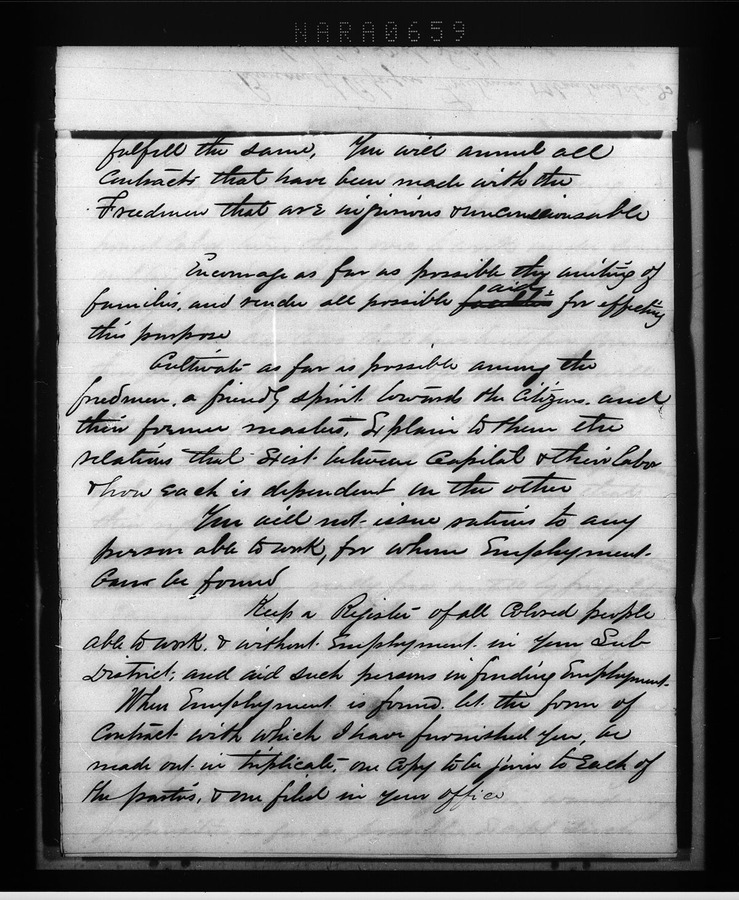 NARA0659
fulfill the same, You will annul all
Contracts that have been made with the
Freedmen that are injurious & unconscionsable
Encourage as far as possible the uniting of
families, and render all possible aid for effecting
this purpose
Cultivate as far is possible among the
freedmen, a friendly spirit towards the Citizens and
their former masters, Explain to them the
relations that Exist between Capital & their labor
& how each is dependent on the other
You will not issue rations to any
person able to work, for whom Employment
Can be found
Keep a Register of all Colored people
able to work, & without Employment in your Sub
District, and aid such persons in finding Employment
When Employment is found let the form of
Contract with which I have furnished you, be
made out in triplicate, one Copy to be given to Each of
the parties, & one filed in your office